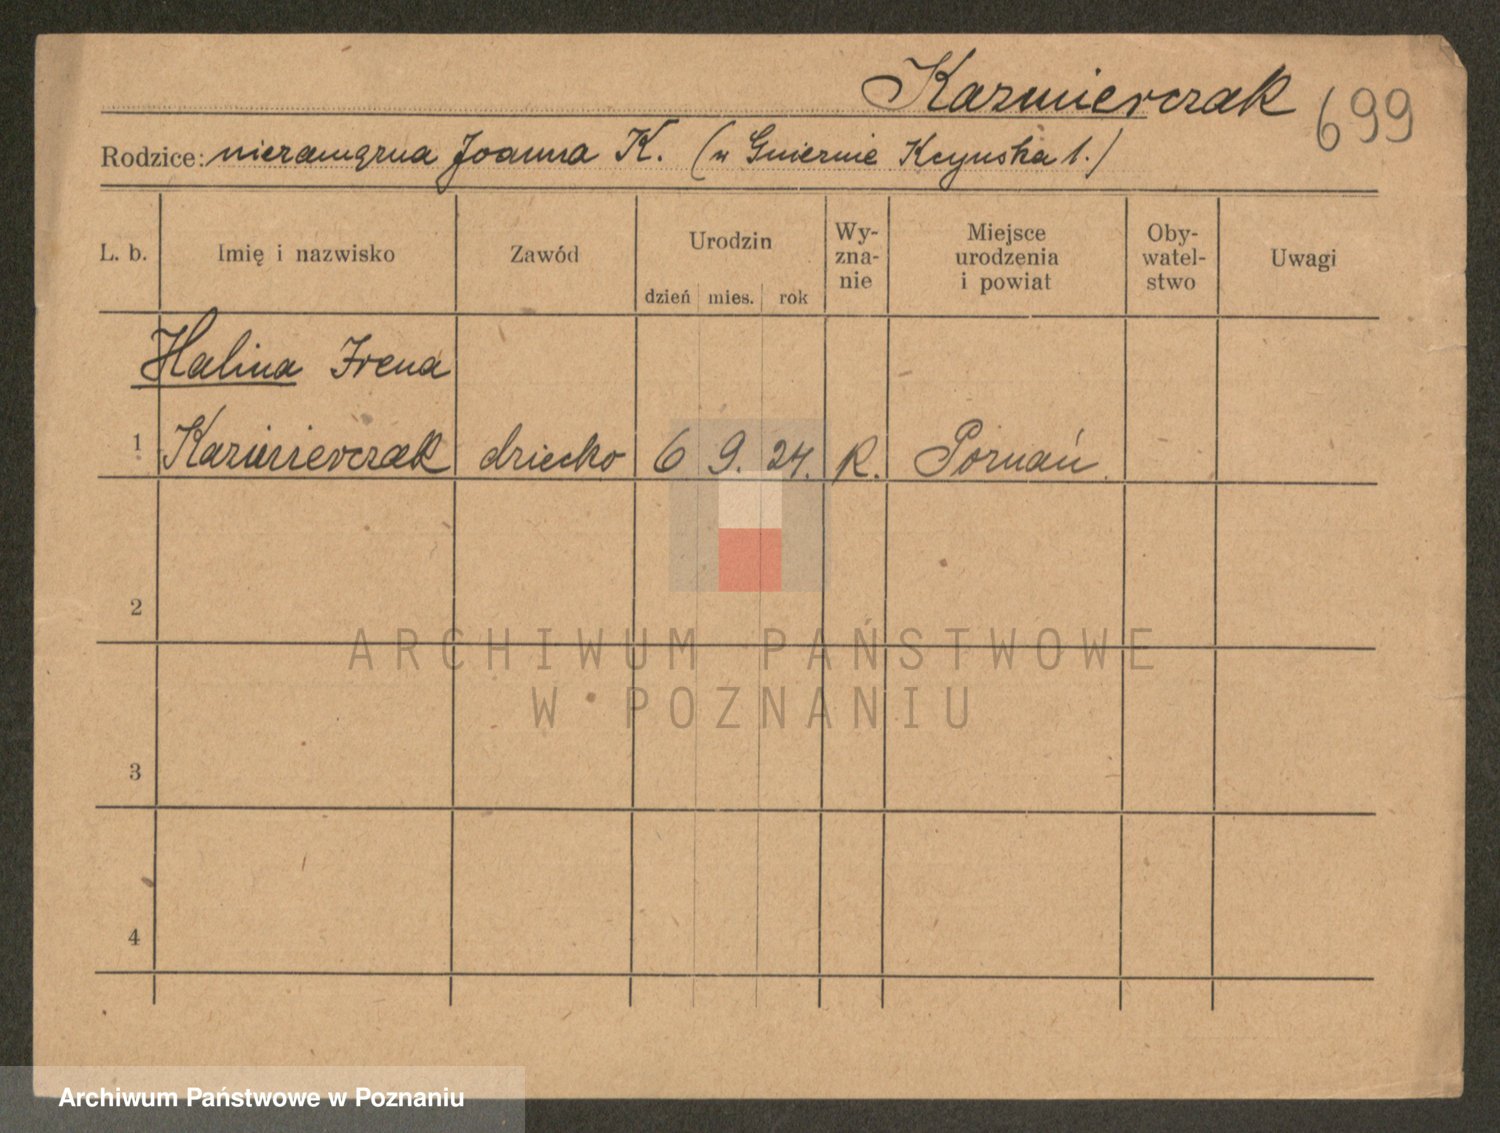 Kazmierczak 699
Rodzice: niezamężna Joanna K. (w Gnieznie Kcyńska 1.)
L. b. Imię i nazwisko Zawód Urodzin dzień mies. rok Wy-zna-nie Miejsce urodzenia i powiat Oby-watel-stwo Uwagi
Halina Irena
1 Kazmierczak dziecko 6 9. 24. R. Poznań.
2
ARCHIWUM PAŃSTWOWE
W POZNANIU
3
4
Archiwum Państwowe w Poznaniu